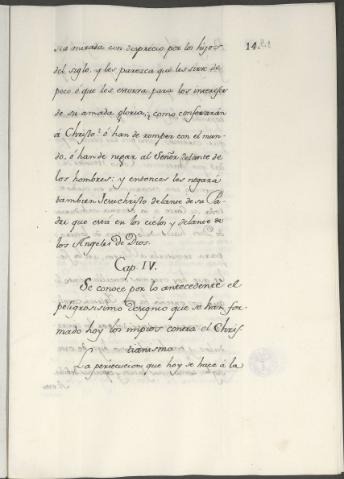 sea mirada con desprecio por los hijos 14.
del siglo, y les paresca que les sirve de
poco ó que les estorva para los intereses
de su amada gloria, ¿como confesarán
á Christo? ó han de romper con el mun-
do, ó han de negar al Señor delante de
los hombres: y entonces los negará
tambien Jesuchristo delante de su Pa-
dre que está en los cielos y delante de
los Angeles de Dios.
Cap. IV.
Se conoce por lo antecedente el
peligrosissimo designio que se han for-
mado hoy los impios contra el Chris-
tianismo
La persecucion que hoy se hace á la